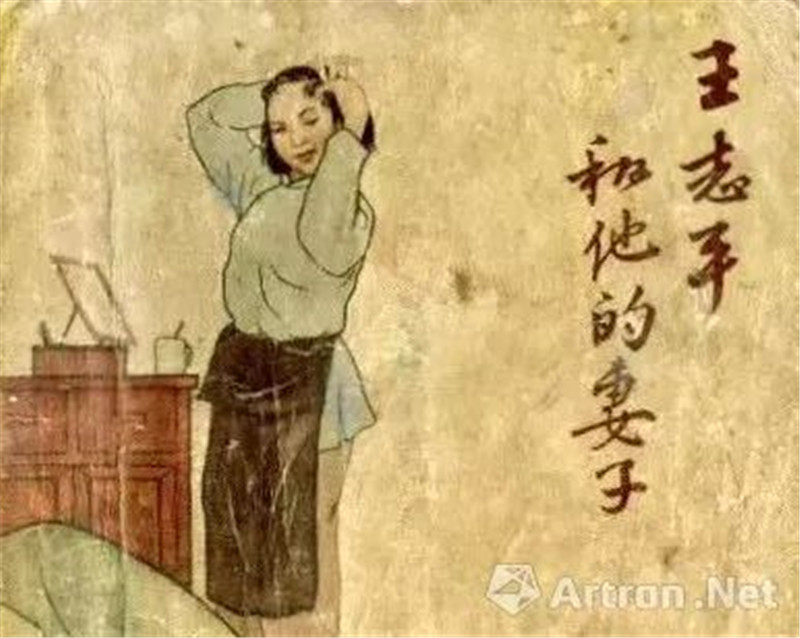 王志平
和他的妻子
Artron.Net